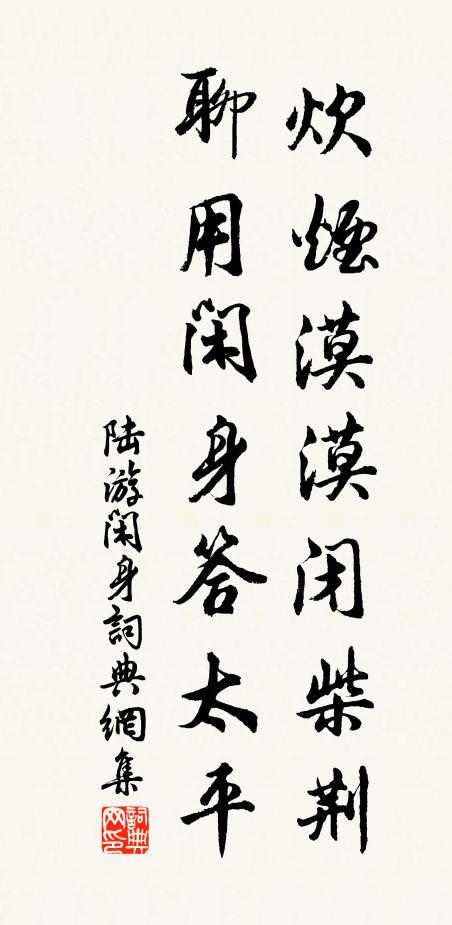 炊煙漠漠闭柴荆
聊用闲身答太平
陆游闲身詞典網集
詞典网印